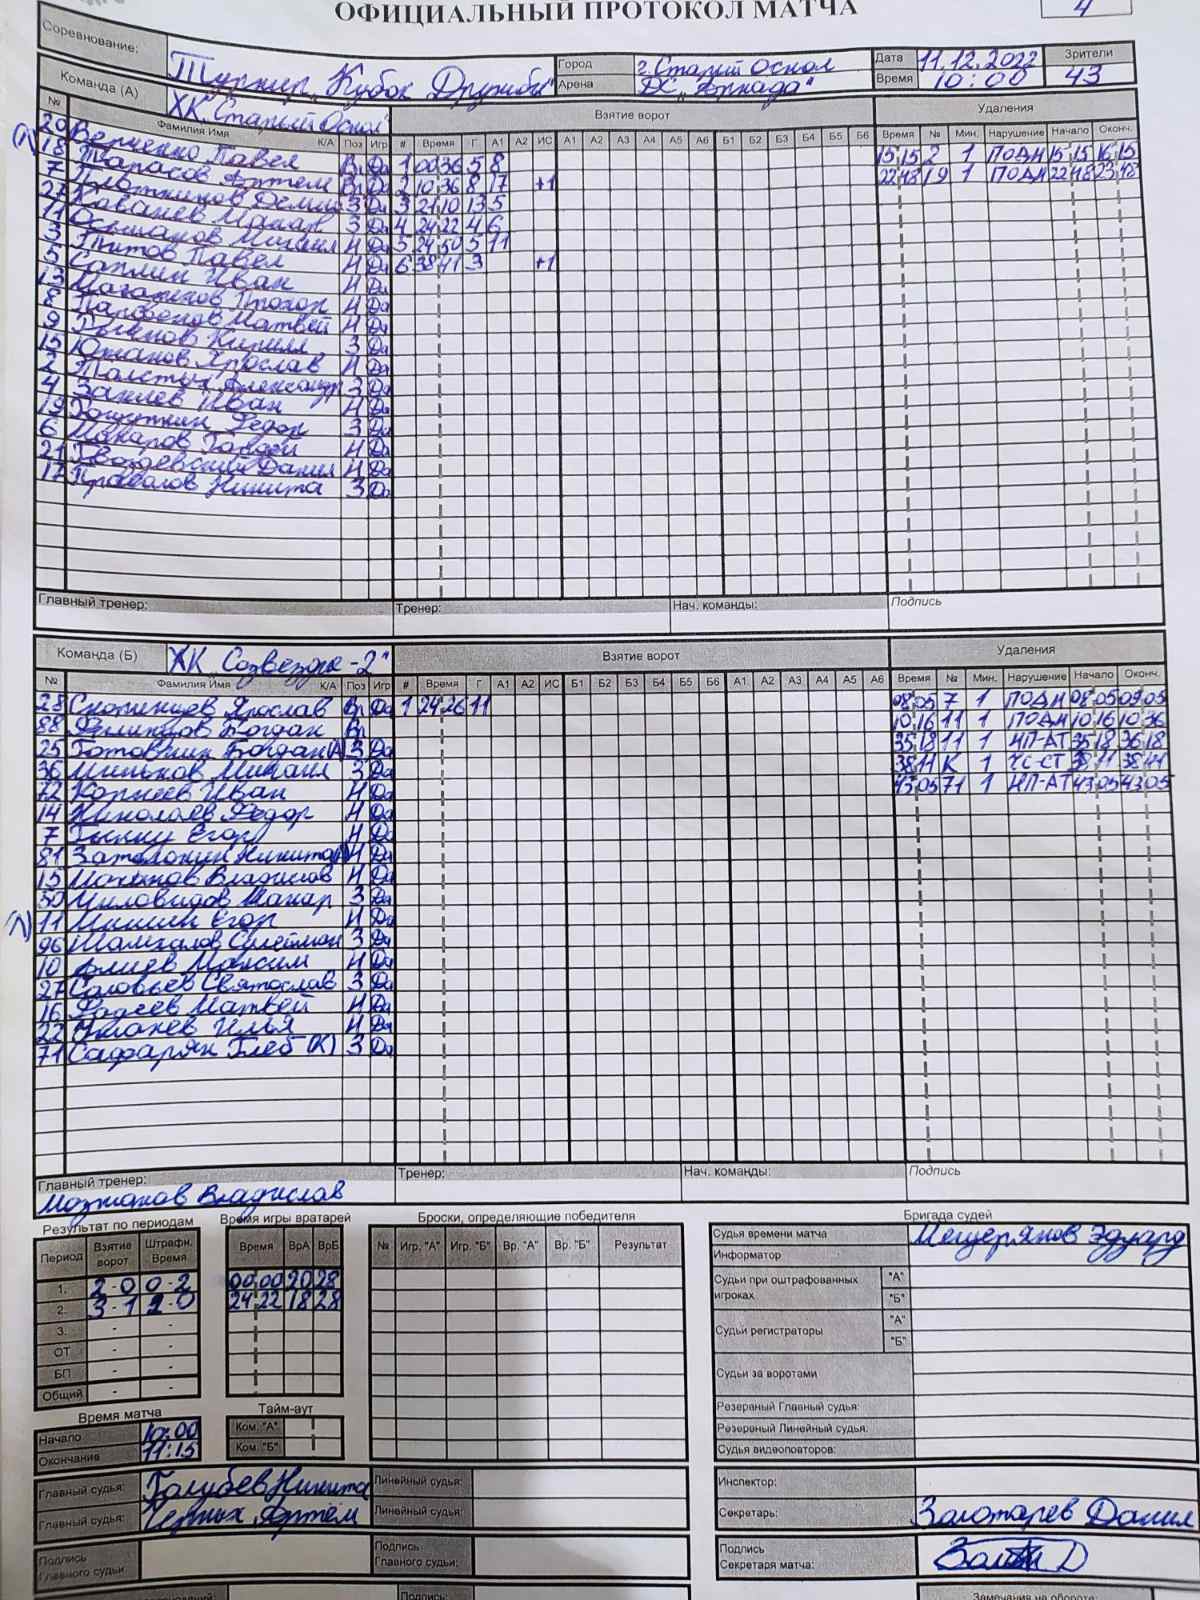 ОФИЦИАЛЬНЫЙ ПРОТОКОЛ МАТЧА 4
Соревнование: Турнир „Кубок Дружбы" Город г. Старый Оскол Дата 11.12.2022 Зрители
Арена ДС „Аркада" Время 10:00 43
Команда (А) ХК „Старый Оскол" Взятие ворот Удаления
№ Фамилия Имя К/А Поз Игр # Время Г А1 А2 ИС А1 А2 А3 А4 А5 А6 Б1 Б2 Б3 Б4 Б5 Б6 Время № Мин. Нарушение Начало Оконч.
20 Павел Вр Да 1 00 36 5 8 15 15 2 1 ПОДН 15 15 16 15
18 Тарасов Артём Вр Да 2 10 36 8 17 +1 22 48 19 1 ПОДН 22 48 23 48
7 Плотников З Да 3 21 10 13 5
27 З Да 4 24 22 4 6
11 Михаил Н Да 5 24 50 5 11
3 Титов Павел Н Да 6 38 41 3 +1
5 Саплин Иван Н Да
13 Прохор Н Да
8 Парфенов Матвей Н Да
9 Кирилл З Да
15 Южаков Ярослав Н Да
2 Толстых Александр З Да
4 Иван Н Да
19 Федор З Да
6 Макаров Н Да
21 Гвоздевский Данил Н Да
17 Никита З Да
Главный тренер: Тренер: Нач. команды: Подпись
Команда (Б) ХК „Созвездие-2" Взятие ворот Удаления
№ Фамилия Имя К/А Поз Игр # Время Г А1 А2 ИС Б1 Б2 Б3 Б4 Б5 Б6 А1 А2 А3 А4 А5 А6 Время № Мин. Нарушение Начало Оконч.
28 Ярослав Вр Да 1 24 26 11 08 05 7 1 ПОДН 08 05 09 05
88 Филиппов Богдан Вр 10 16 11 1 ПОДН 10 16 10 36
25 Готовкин Богдан (А) З Да 35 18 11 1 НП-АТ 35 18 36 18
36 Миньков Михаил З Да 38 11 К 1 38 11 38 41
72 Корнеев Иван Н Да 43 05 71 1 НП-АТ 43 05 43 05
14 Николаев Федор Н Да
7 Егор Н Да
81 Никита Н Да
15 Владислав Н Да
50 Миловидов Макар З Да
11 Мишин Егор Н Да
96 Шамхалов З Да
10 Алиев Максим Н Да
27 Соловьев Святослав З Да
16 Фадеев Матвей Н Да
22 Илья Н Да
71 Сафарян Глеб (К) З Да
Главный тренер: Тренер: Нач. команды: Подпись
Владислав
Результат по периодам Время игры вратарей Броски, определяющие победителя Бригада судей
Период Взятие ворот Штрафн. Время Время ВрА ВрБ № Игр. "А" Игр. "Б" Вр. "А" Вр. "Б" Результат Судья времени матча Мещеряков Эдуард
Информатор
1. 2-0 0-2 00 00 20 28 Судьи при оштрафованных игроках "А"
2. 3-1 2-0 24 22 18 28 "Б"
3. - - Судьи регистраторы "А"
ОТ - - "Б"
БП - - Судьи за воротами
Общий - -
Резервный Главный судья:
Время матча Тайм-аут Резервный Линейный судья:
Начало 10:00 Ком. "А" Судья видеоповторов:
Окончание 11:15 Ком. "Б"
Главный судья: Голубев Никита Линейный судья: Инспектор:
Главный судья: Черных Артём Линейный судья: Секретарь: Золотарев Данил
Подпись Главного судьи Подпись Главного судьи: Подпись Секретаря матча:
Подпись: Замечания на обороте: